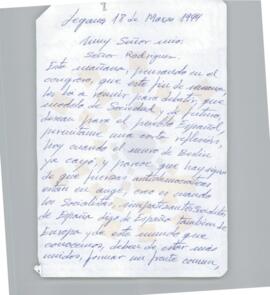 Leganes 18 de Marzo 1994
Muy Señor mio:
Señor Rodriguez.
Esta mañana, pensando en el
congreso, que este fin de semana,
los va a reunir para debatir, que
modelo de Sociedad y de futuro,
desean para el pueblo Español,
permitame una corta reflexión,
hoy cuando el muro de Berlin
ya cayó, y parece que hay signos
de que fuerzas antidemocraticas
estén en auge, creo es cuando
los Socialistas, simpatizantes Socialistas de
España digo de España tambien de
Europa y de este mundo que
conocemos, deben de estar más
unidos, formar un frente comun,